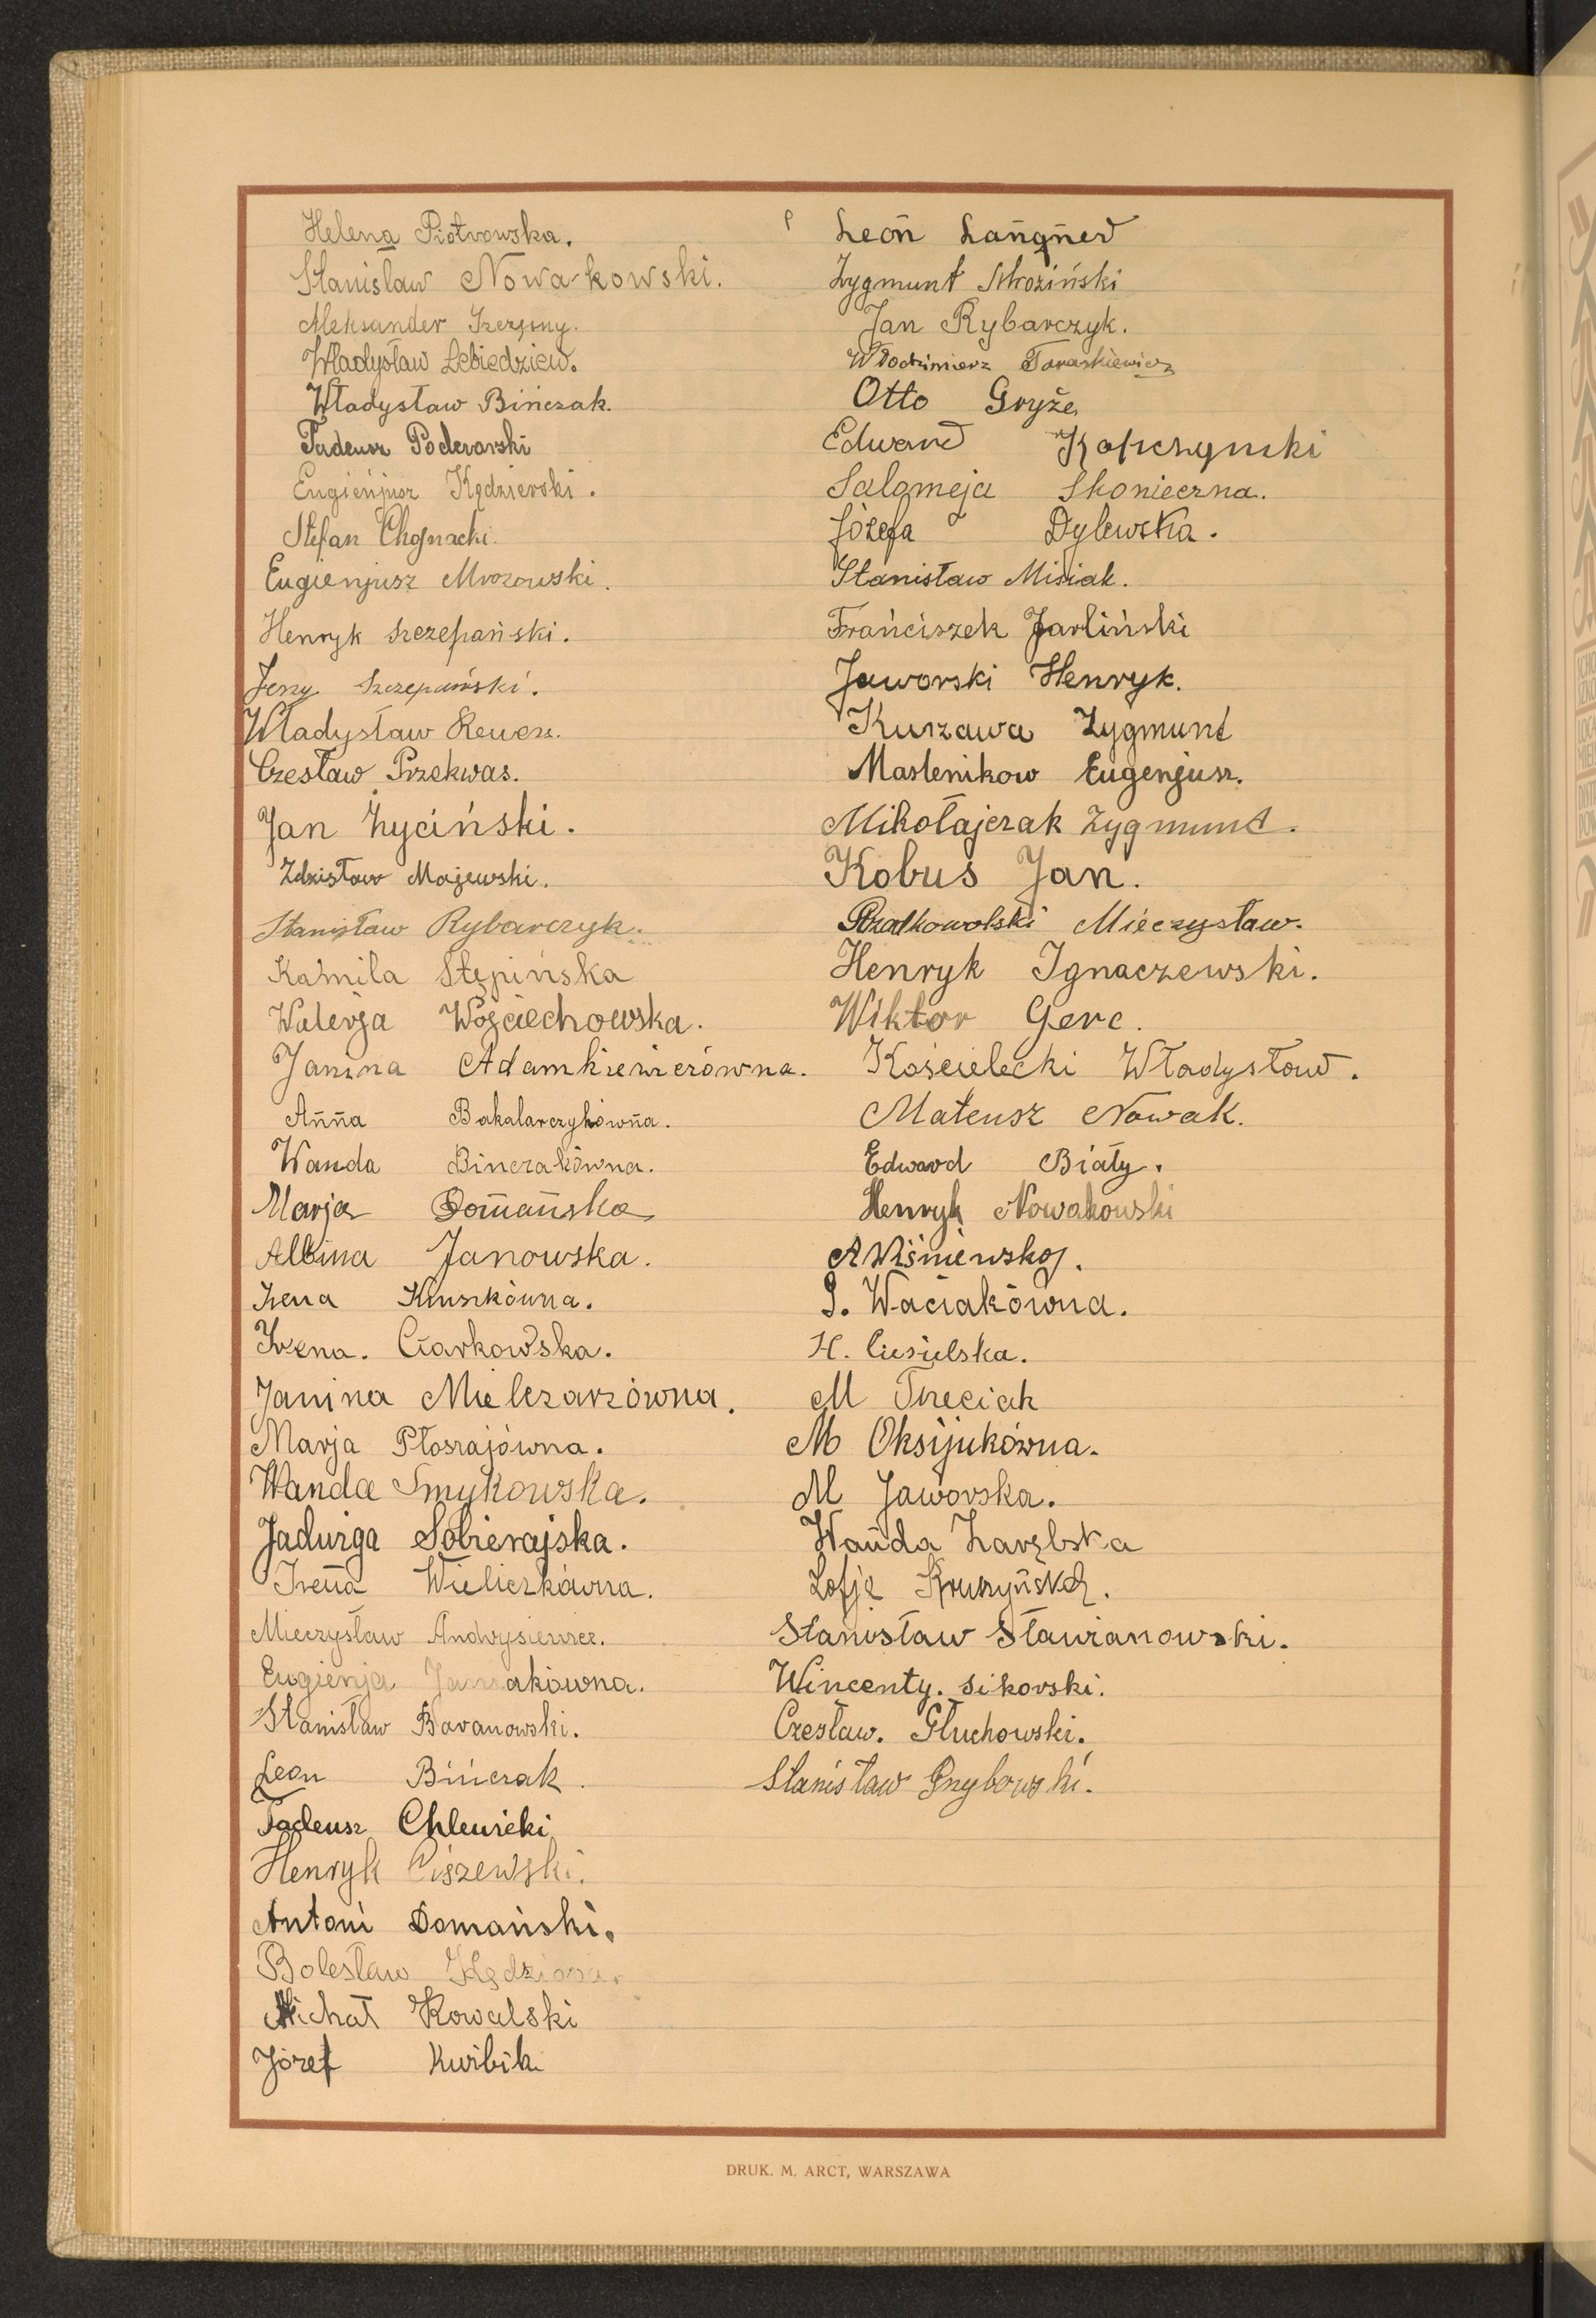 Helena Piotrowska.
Stanisław Nowakowski.
Aleksander Szczęsny.
Władysław Lebiedziew.
Władysław Bińczak.
Tadeusz Poderarski
Eugieńjusz Kędzierski.
Stefan Chojnacki.
Eugienjusz Mrozowski.
Henryk Szczepański.
Jerzy Szczepański.
Władysław Rewers.
Czesław Przekwas.
Jan Życiński.
Zdzisław Majewski.
Stanisław Rybarczyk.
Kamila Stępińska
Walerja Wojciechowska.
Janina Adamkiewiczówna.
Anna Bakalarczykówna.
Wanda Binczakówna.
Marja Domańska
Albina Janowska.
Irena Kluszkówna.
Irena. Ciarkowska.
Janina Mielczarzówna.
Marja Płoszajówna.
Wanda Smykowska.
Jadwiga Sobierajska.
Irena Wieliczkówna.
Mieczysław Andrysiewicz.
Eugienja Janiakówna.
Stanisław Baranowski.
Leon Bińczak.
Tadeusz Chlewicki
Henryk Ciszewski.
Antoni Domański.
Bolesław Kędziora.
Michał Kowalski
Józef Kwibik
Leon Langner
Zygmunt Skoziński
Jan Rybarczyk.
Włodzimierz Taraskiewicz
Otto Gryże
Edward Kopczynski
Salomeja Skonieczna.
Józefa Dylewska.
Stanisław Misiak.
Franciszek Jarliński
Jaworski Henryk.
Kurzawa Zygmunt
Maslenikow Eugenjusz.
Mikołajczak Zygmunt.
Kobus Jan.
Mieczysław.
Henryk Ignaczewski.
Wiktor Gerc.
Kościelecki Władysław.
Mateusz Nowak.
Edward Biały.
Henryk Nowakowski
A Wiśniewska.
J. Waciakówna.
H. Ciesielska.
M Trzeciak
M Oksijukówna.
M Jaworska.
Wanda Zarębska
Zofja Kruszyńska.
Stanisław Stawianowski.
Wincenty. Sikorski.
Czesław. Głuchowski.
Stanisław Grzybowski.
DRUK. M. ARCT, WARSZAWA